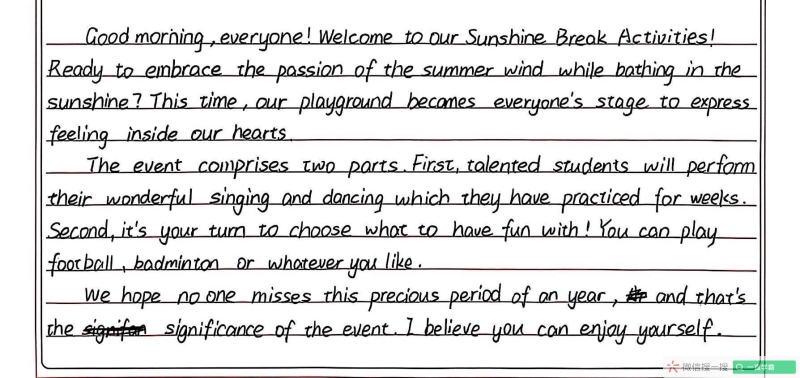 Good morning, everyone! Welcome to our Sunshine Break Activities!
Ready to embrace the passion of the summer wind while bathing in the
sunshine? This time, our playground becomes everyone's stage to express
feeling inside our hearts.
The event comprises two parts. First, talented students will perform
their wonderful singing and dancing which they have practiced for weeks.
Second, it's your turn to choose what to have fun with! You can play
football, badminton or whatever you like.
We hope no one misses this precious period of an year, and that's
the significance of the event. I believe you can enjoy yourself.
微信搜一搜